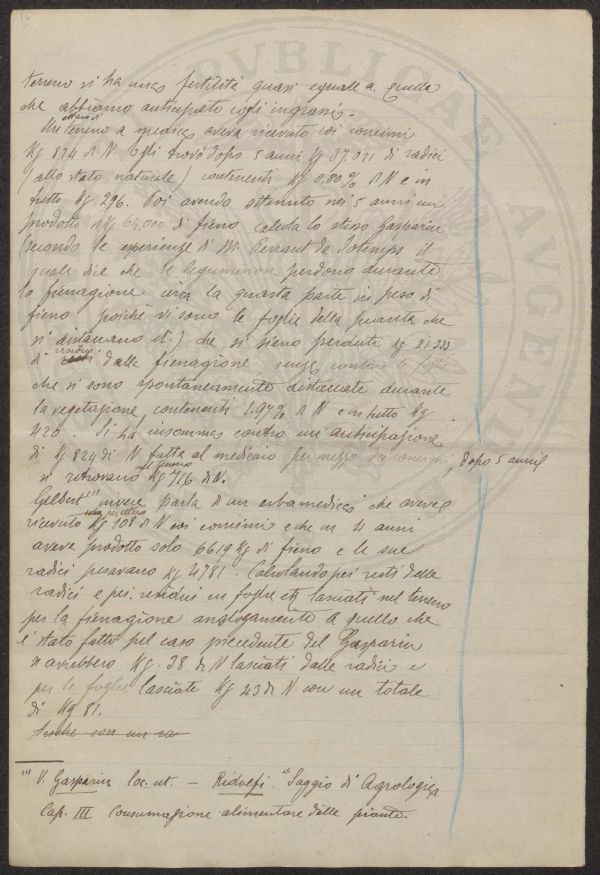 terreno si ha una fertilità quasi eguale a quella
che abbiamo anticipato cogli ingrassi.
Un ettaro di terreno a medica aveva ricevuto coi concimi
Kg 824 di N. Egli trovò dopo 5 anni Kg 37.021 di radici
(allo stato naturale) contenenti Kg 0,80% di N e in
tutto Kg 296. Poi avendo ottenuto nei 5 anni un
prodotto di Kg 64,000 di fieno calcola lo stesso Gasparin
(secondo le esperienze di M. Perraut de Jotemps il
quale dice che le leguminose perdono durante
la fienagione circa la quarta parte in peso di
fieno poiché vi sono le foglie della pianta che
si distaccano ) che si sieno perduti Kg 21.333
di residui dalla fienagione, senza contare le foglie
che si sono spontaneamente distaccate durante
la vegetazione, contenenti 1.97% di N e in tutto Kg
420. Si ha insomma contro un'anticipazione
di Kg 824 di N fatta al medicaio per mezzo dei concimi, dopo 5 anni
si ritrovano nel terreno Kg 716 di N.
Gilbert (1) invece parla di un erbamedica che aveva
ricevuto per ettaro Kg 108 di N coi concimi e che in 4 anni
aveva prodotto solo 6619 Kg di fieno e le sue
radici pesavano Kg 4781. Calcolando pei resti delle
radici e pei residui in foglie etc lasciati nel terreno
per la fienagione analogamente a quello che
è stato fatto pel caso precedente del Gasparin
si avrebbero Kg. 38 di N lasciati dalle radici e
per le foglie lasciate Kg 43 di N con un totale
di Kg 81.
Anche con un ra
(1) V. Gasparin loc. cit. — Ridolfi. "Saggio di Agrologia
Cap. III Consumazione alimentare delle piante.